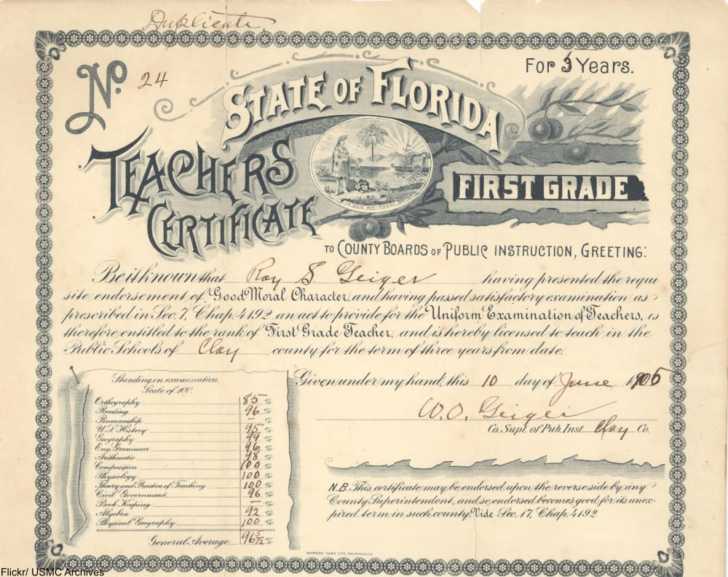 Duplicate
No 24
For 3 Years.
STATE OF FLORIDA
TEACHERS
CERTIFICATE
FIRST GRADE
TO COUNTY BOARDS OF PUBLIC INSTRUCTION, GREETING:
Be it known that Roy S Geiger having presented the requi
site endorsement of Good Moral Character, and having passed satisfactory examination as
prescribed in Sec. 7, Chap. 4192 an act to provide for the Uniform Examination of Teachers, is
therefore entitled to the rank of First Grade Teacher, and is hereby licensed to teach in the
Public Schools of Clay county for the term of three years from date.
Standing on examination.
Scale of 100.
Given under my hand, this 10 day of June 1905
W.O. Geiger
Co. Supt. of Pub. Inst. Clay Co.
Orthography 85
Reading 96
Penmanship –
U.S. History 95
Geography 99
Eng. Grammar 96
Arithmetic 98
Composition 100
Physiology 100
Theory and Practice of Teaching 100
Civil Government 96
Book Keeping –
Algebra 92
Physical Geography 100
General Average
N.B. This certificate may be endorsed upon the reverse side by any
County Superintendent, and so endorsed becomes good for its unex-
pired term in such county. Vide Sec. 17, Chap. 4192
Flickr/ USMC Archives